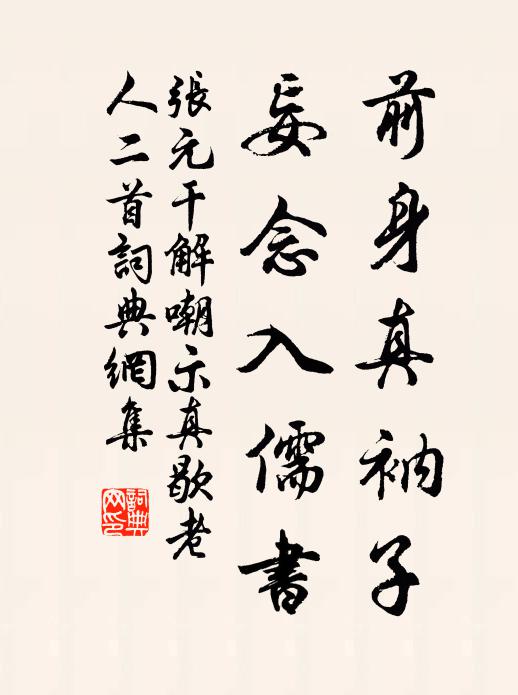 前身真衲子
妄念入儒書
張元干解嘲示真歇老
人二首詞典網集
詞典网印